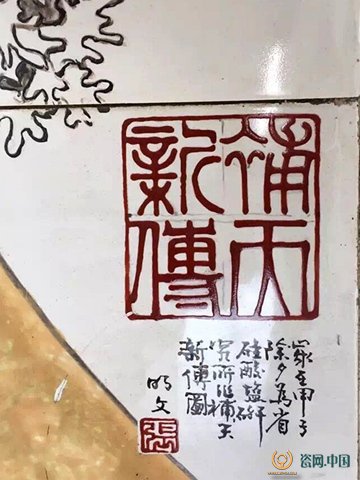 補天
新傳
歲在甲子
除夕為省
硅酸鹽研
究所作補天
新傳圖
明文
張
瓷网.中国